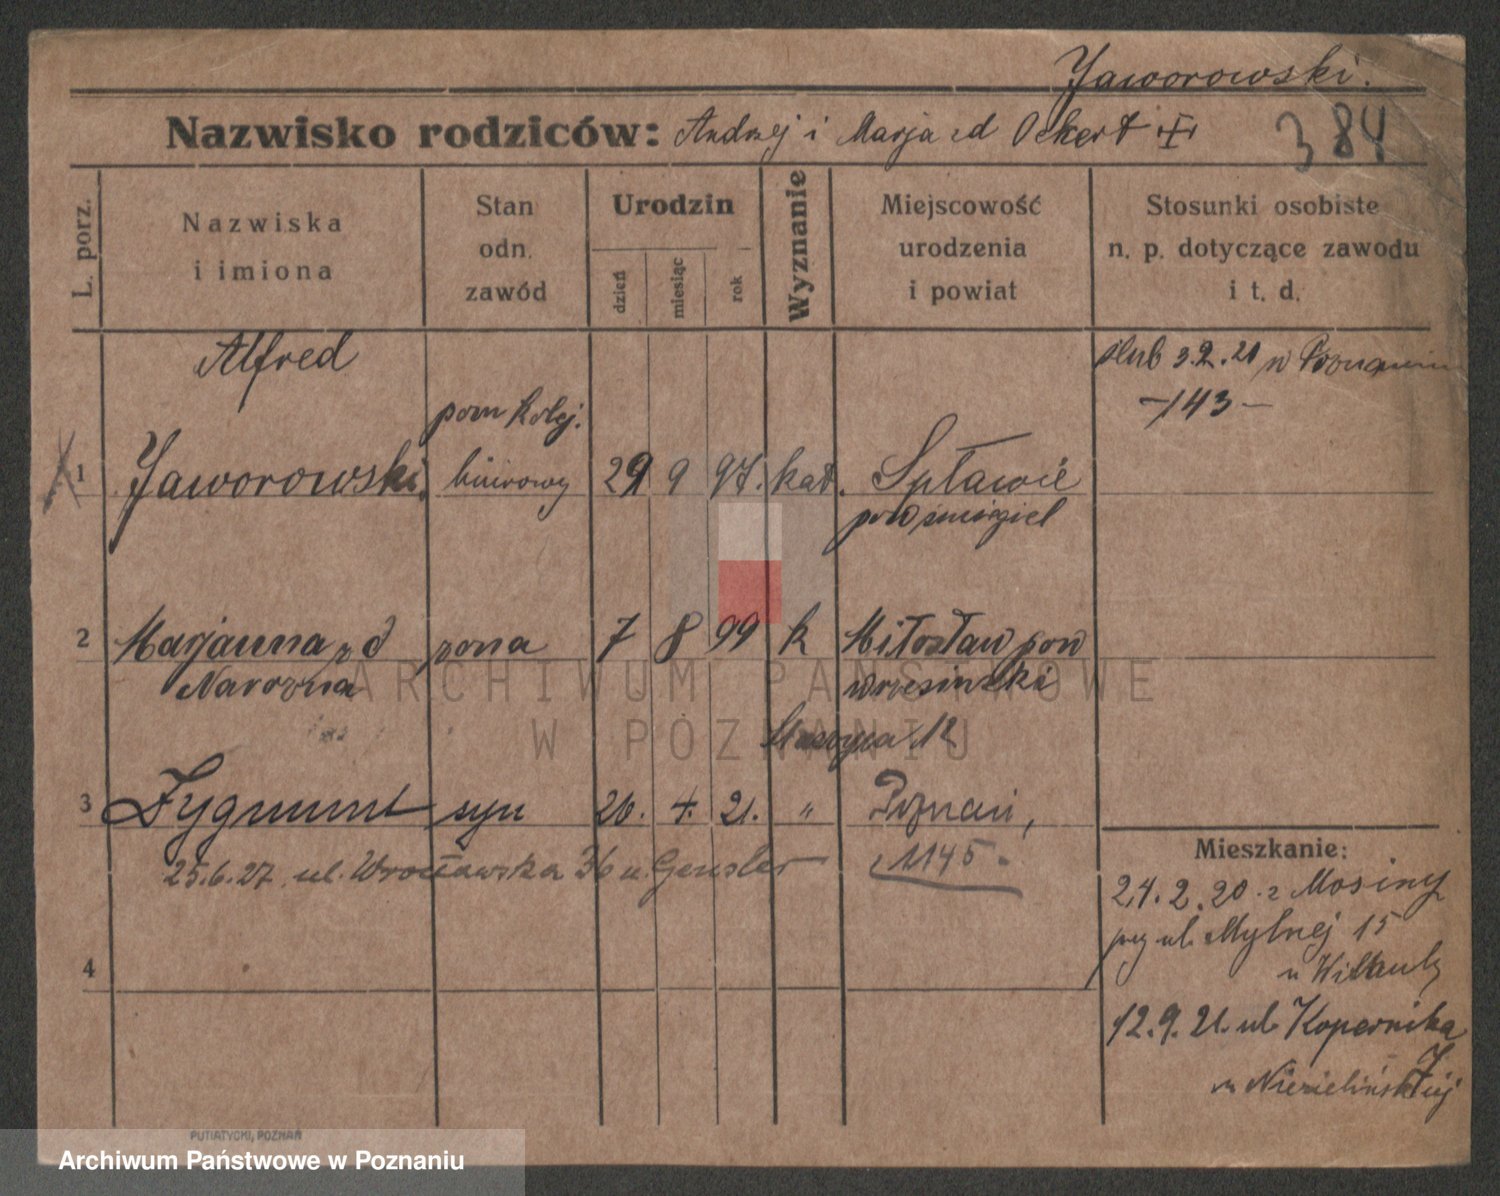 Jaworowski.
Nazwisko rodziców: Andrzej i Marja zd Ockert
384
L. porz.
Nazwiska
i imiona
Stan
odn.
zawód
Urodzin
dzień
miesiąc
rok
Wyznanie
Miejscowość
urodzenia
i powiat
Stosunki osobiste
n. p. dotyczące zawodu
i t. d.
Alfred
ślub 3.2.20 w Poznaniu
-143-
pom kolej.
1 Jaworowski. biurowy 29 9 97. kat. Spławie
pow śmigiel
2 Marjanna zd żona 7 8 99 k Miłosław pow
Narożna wrzesiński
12
3 Zygmunt syn 26. 4. 21. " Poznań,
25.6.27 ul. Wrocławska 36 u. Gensler 1145.
Mieszkanie:
24.2.20 z Mosiny
przy ul. Młynej 15
u
4
12.9.21. ul. Kopernika 7
u
PUTIATYCKI, POZNAŃ
ARCHIWUM PAŃSTWOWE
W POZNANIU
Archiwum Państwowe w Poznaniu